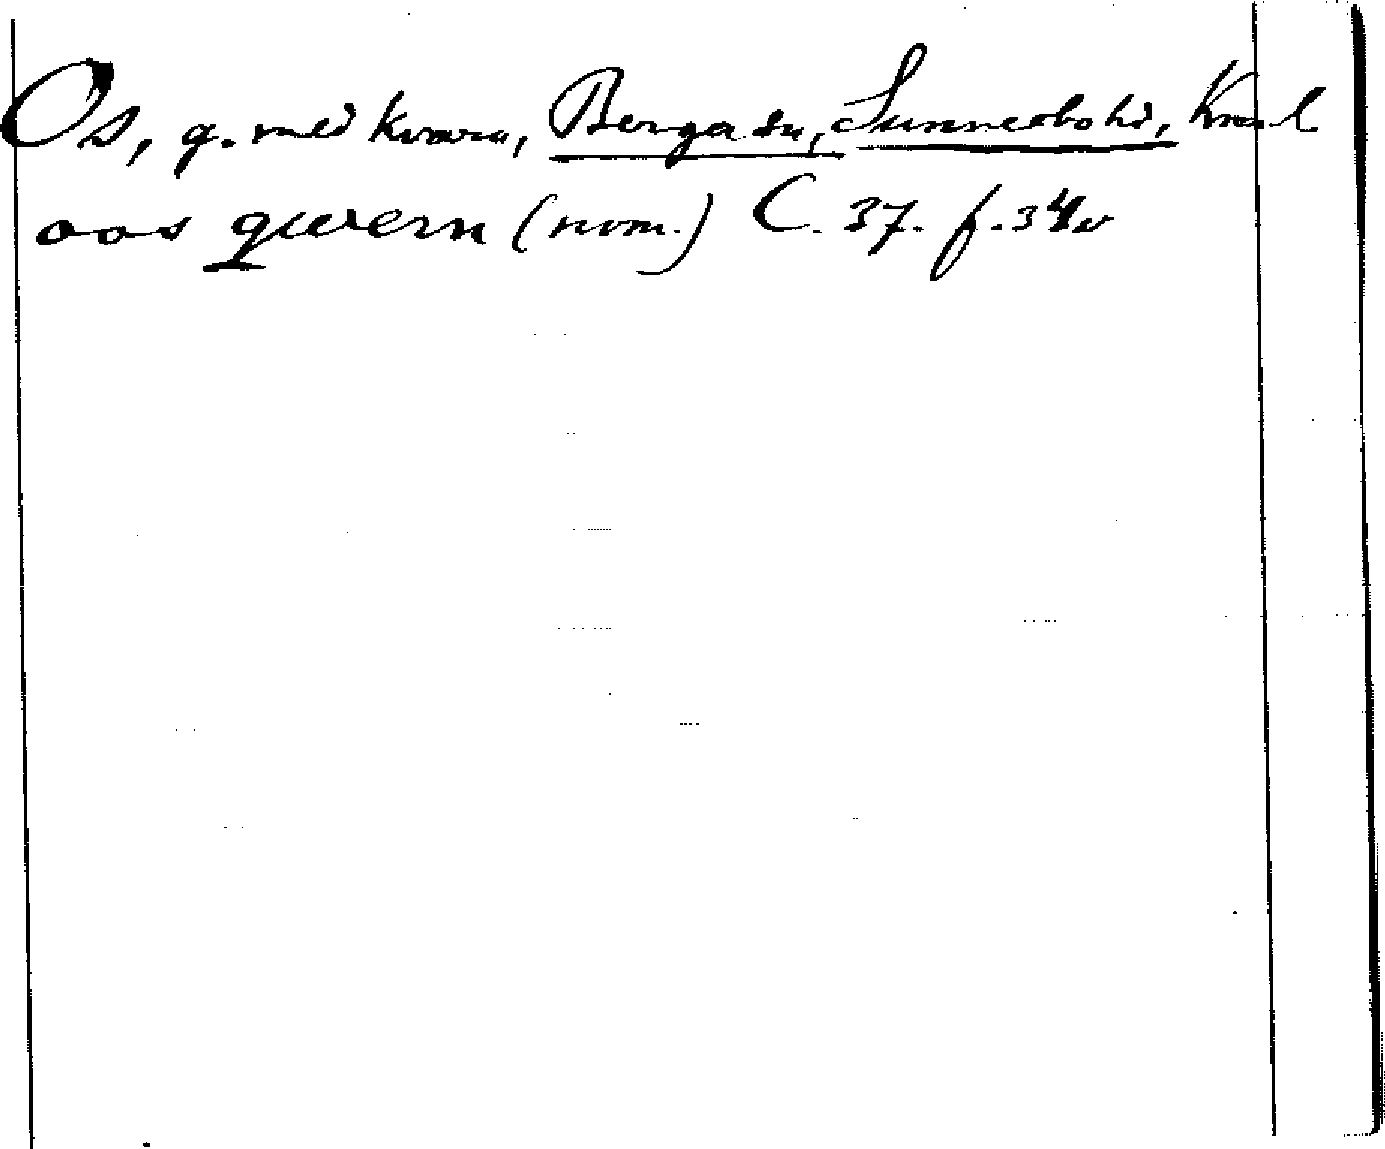 Os, g. med kvarn, Berga sn, Sunnerbo hd, Kron. l
oos qwern (nom.) C. 37. f. 34v